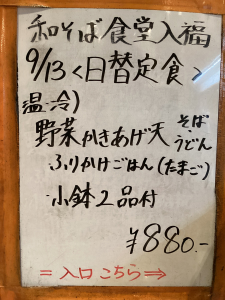 和そば食堂入福
9/13<日替定食>
温・冷)
野菜かきあげ天 そば
うどん
ふりかけごはん(たまご)
小鉢2品付
¥880.-
=入口こちら⇒